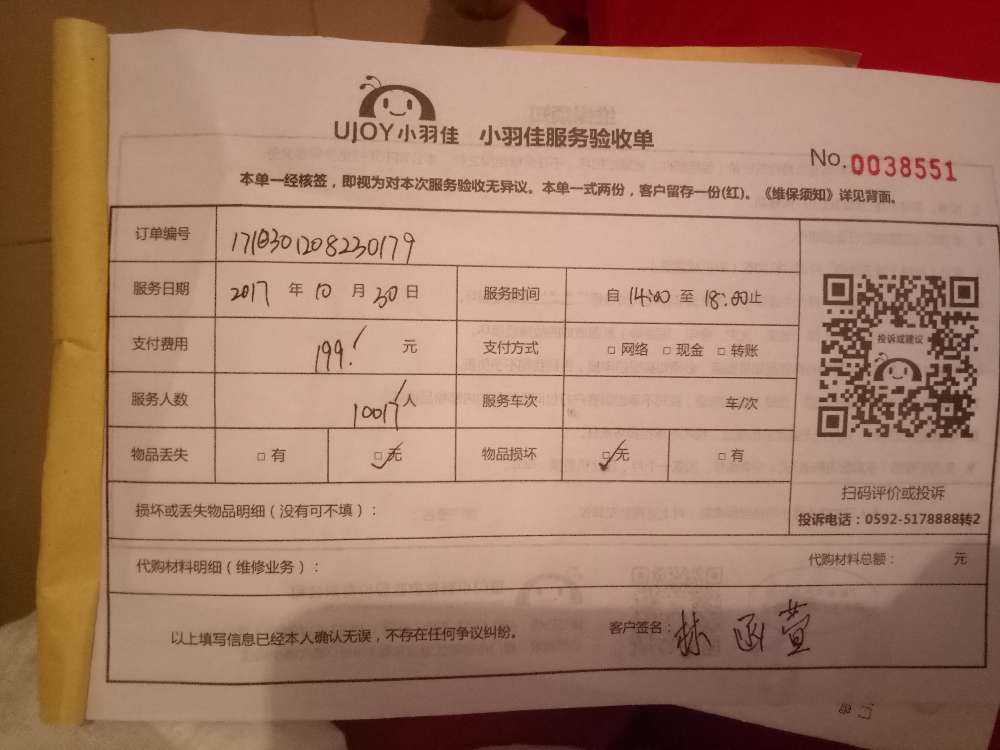 UJOY小羽佳 小羽佳服务验收单
No.0038551
本单一经核签，即视为对本次服务验收无异议。本单一式两份，客户留存一份(红)。《维保须知》详见背面。
订单编号 1718301208230179
服务日期 2017 年 10 月 30 日 服务时间 自 14:00 至 18:00止
支付费用 199. 元 支付方式 □ 网络 □ 现金 □ 转账
投诉或建议
服务人数 10017 人 服务车次 车/次
物品丢失 □ 有 □ 无 物品损坏 □ 无 □ 有
扫码评价或投诉
损坏或丢失物品明细（没有可不填）：
投诉电话：0592-5178888转2
代购材料明细（维修业务）： 代购材料总额： 元
以上填写信息已经本人确认无误，不存在任何争议纠纷。 客户签名：林函萱